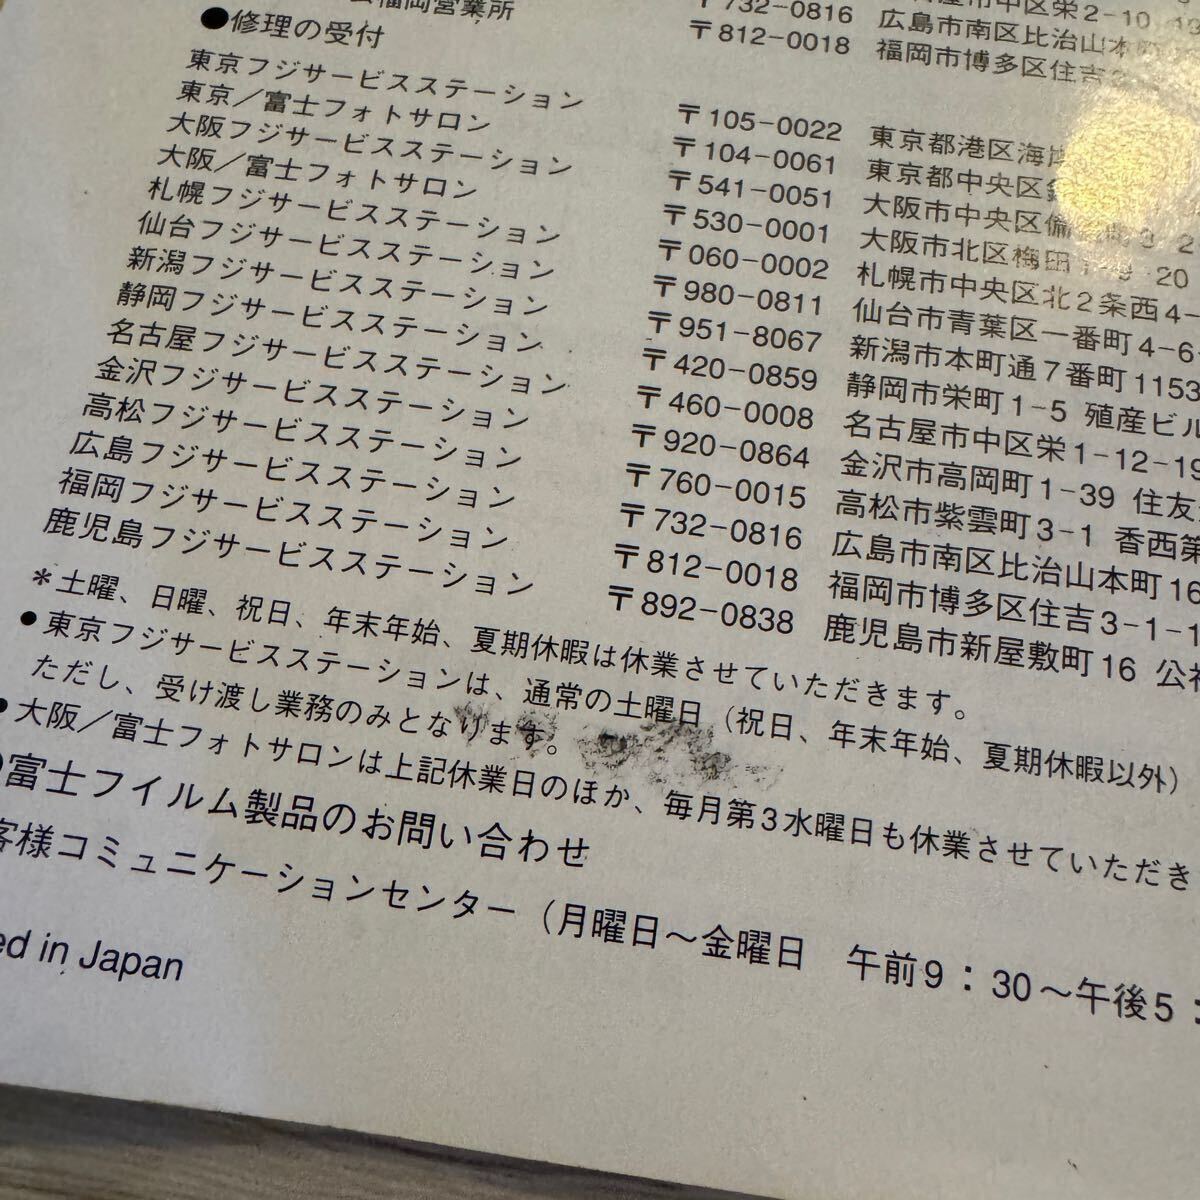 福岡営業所
〒732-0816 広島市南区比治山本
●修理の受付 〒812-0018 福岡市博多区住吉
東京フジサービスステーション 〒105-0022 東京都港区海岸
東京／富士フォトサロン 〒104-0061 東京都中央区
大阪フジサービスステーション 〒541-0051 大阪市中央区備
大阪／富士フォトサロン 〒530-0001 大阪市北区梅田1-9-20
札幌フジサービスステーション 〒060-0002 札幌市中央区北2条西4-
仙台フジサービスステーション 〒980-0811 仙台市青葉区一番町4-6-
新潟フジサービスステーション 〒951-8067 新潟市本町通7番町1153
静岡フジサービスステーション 〒420-0859 静岡市栄町1-5 殖産ビル
名古屋フジサービスステーション 〒460-0008 名古屋市中区栄1-12-19
金沢フジサービスステーション 〒920-0864 金沢市高岡町1-39 住友
高松フジサービスステーション 〒760-0015 高松市紫雲町3-1 香西第
広島フジサービスステーション 〒732-0816 広島市南区比治山本町16
福岡フジサービスステーション 〒812-0018 福岡市博多区住吉3-1-1
鹿児島フジサービスステーション 〒892-0838 鹿児島市新屋敷町16 公社
＊土曜、日曜、祝日、年末年始、夏期休暇は休業させていただきます。
●東京フジサービスステーションは、通常の土曜日（祝日、年末年始、夏期休暇以外）
ただし、受け渡し業務のみとなります。
●大阪／富士フォトサロンは上記休業日のほか、毎月第3水曜日も休業させていただき
●富士フイルム製品のお問い合わせ
客様コミュニケーションセンター（月曜日～金曜日 午前9：30～午後5：
ed in Japan